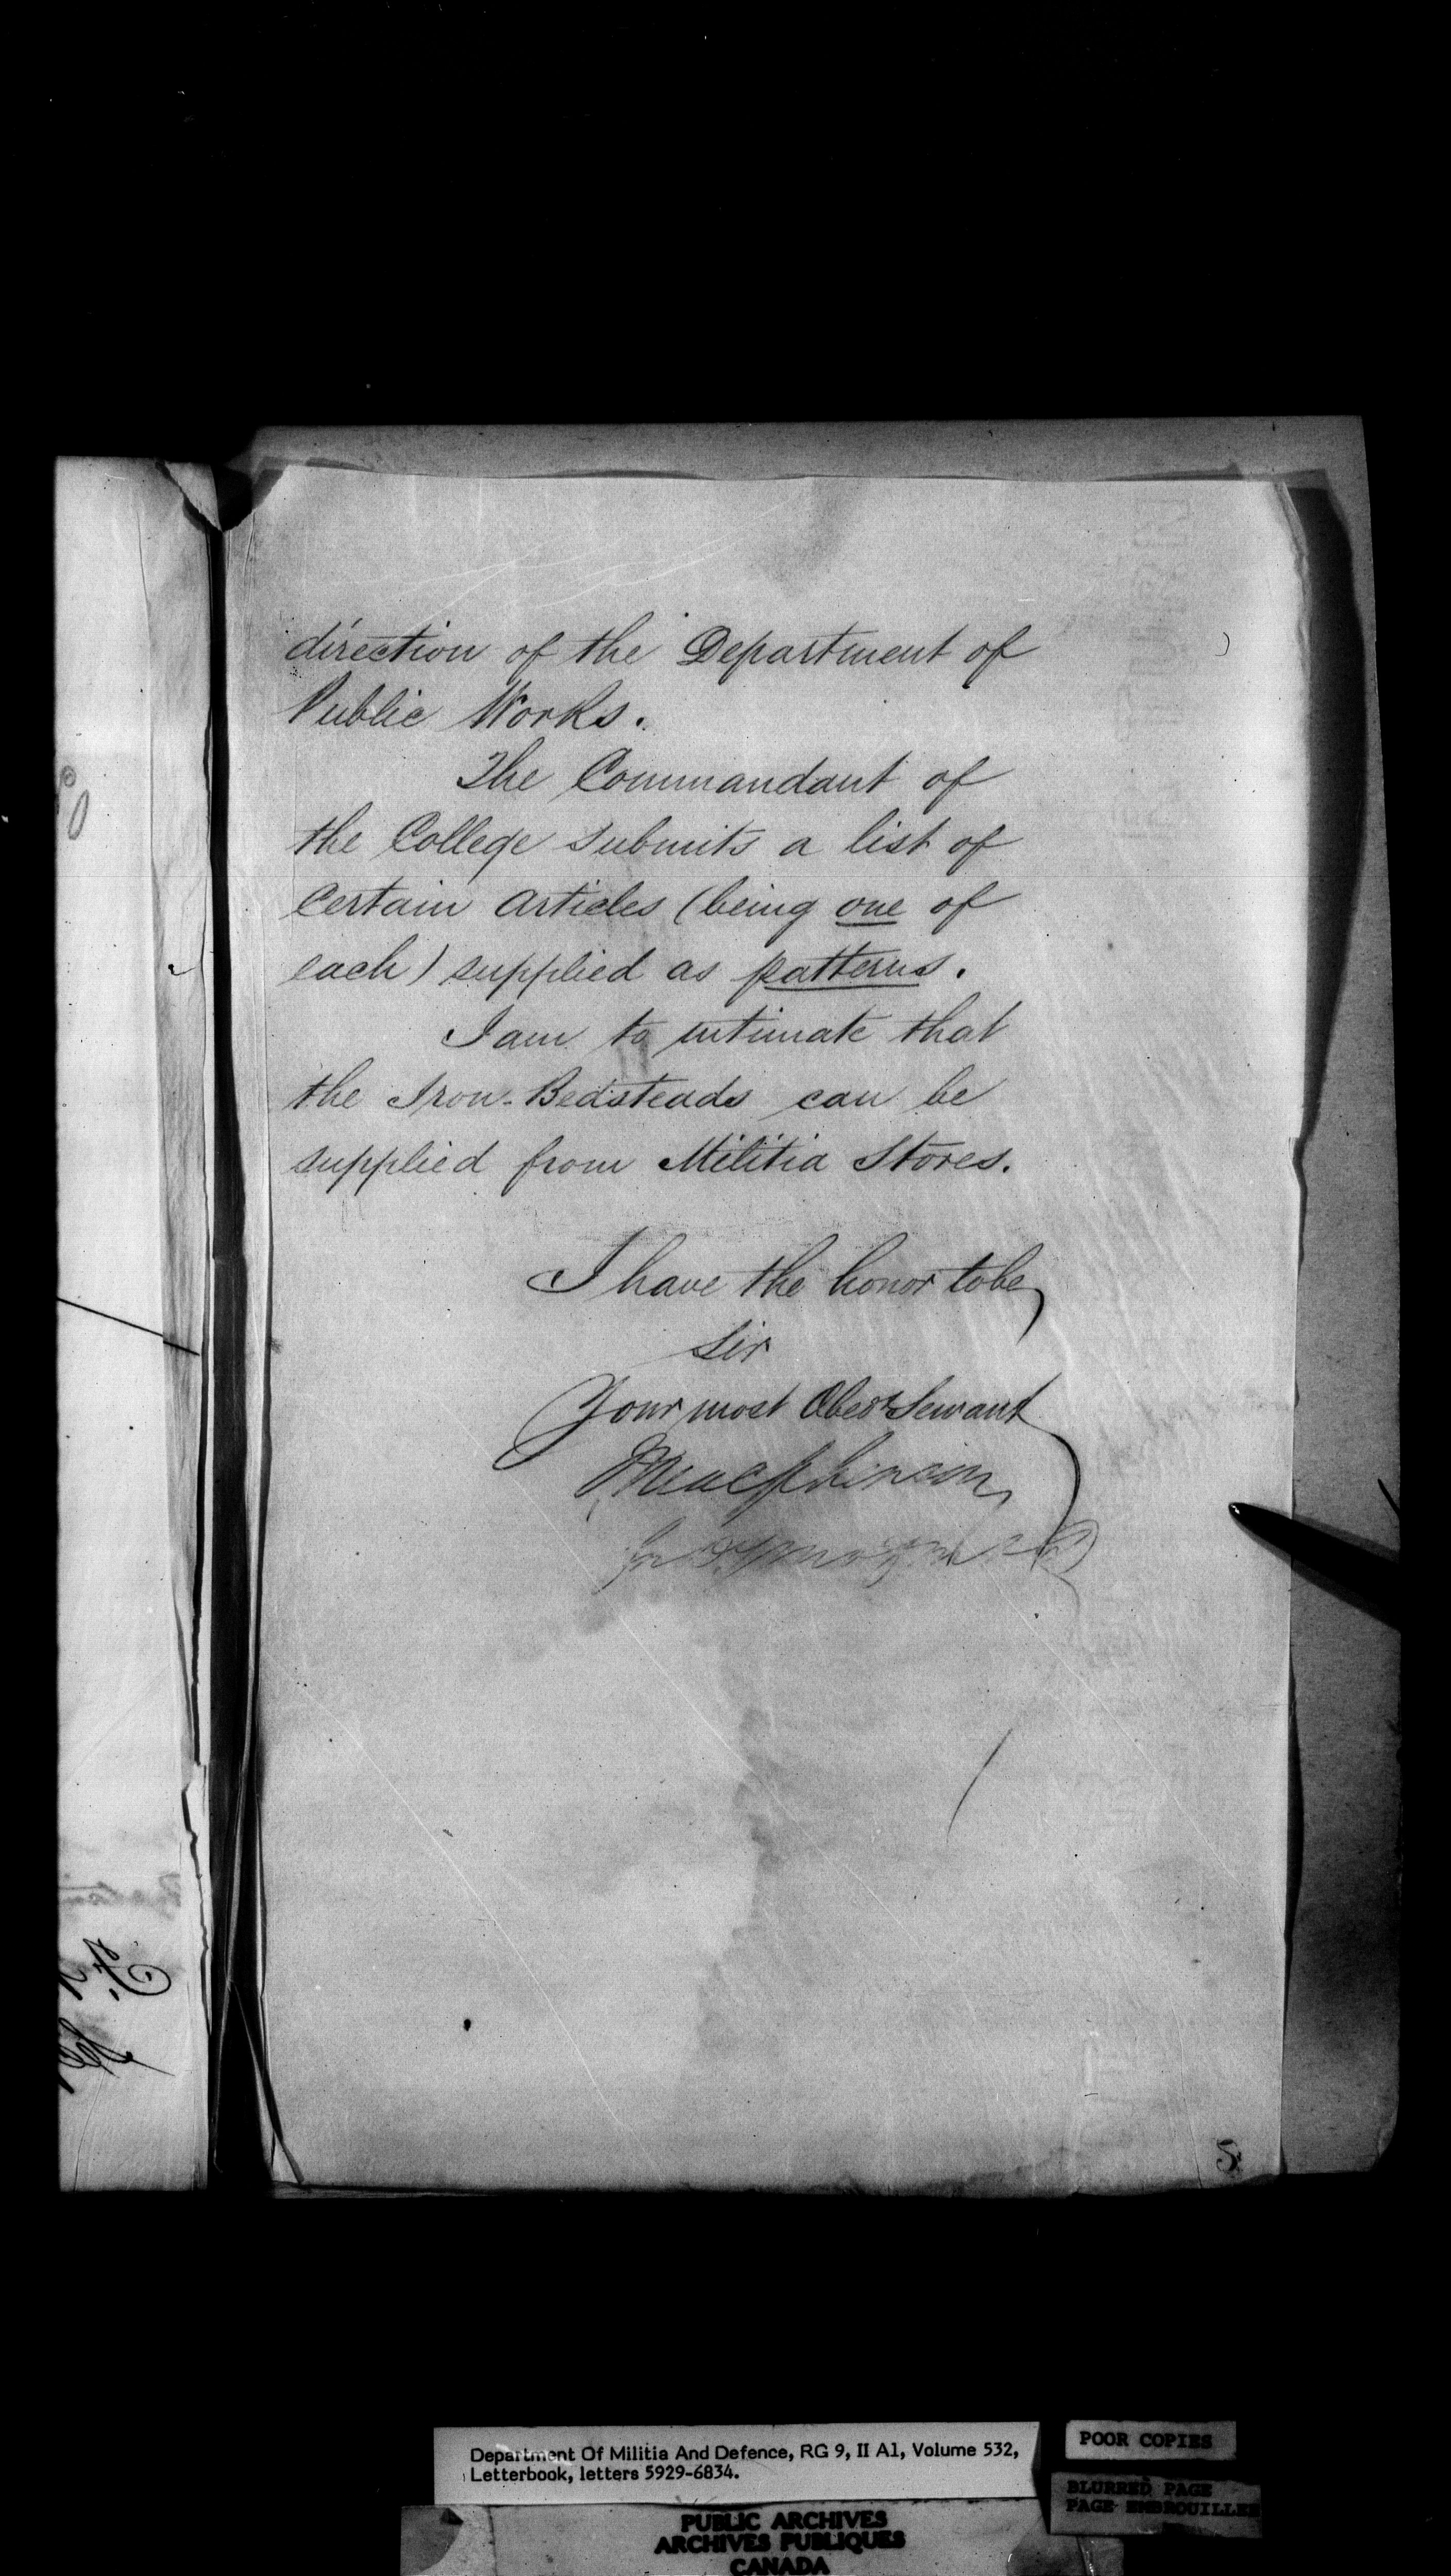 direction of the Department of
Public Works.
The Commandant of
the College submits a list of
Certain Articles (being one of
each) supplied as patterns.
I am to intimate that
the Iron-Bedsteads can be
supplied from Militia Stores.
I have the honor to be,
Sir
Your most Obedt Servant
Macpherson
for
5
Department Of Militia And Defence, RG 9, II A1, Volume 532,
Letterbook, letters 5929-6834.
POOR COPIES
BLURRED PAGE
PAGE EMBROUILLEE
PUBLIC ARCHIVES
ARCHIVES PUBLIQUES
CANADA